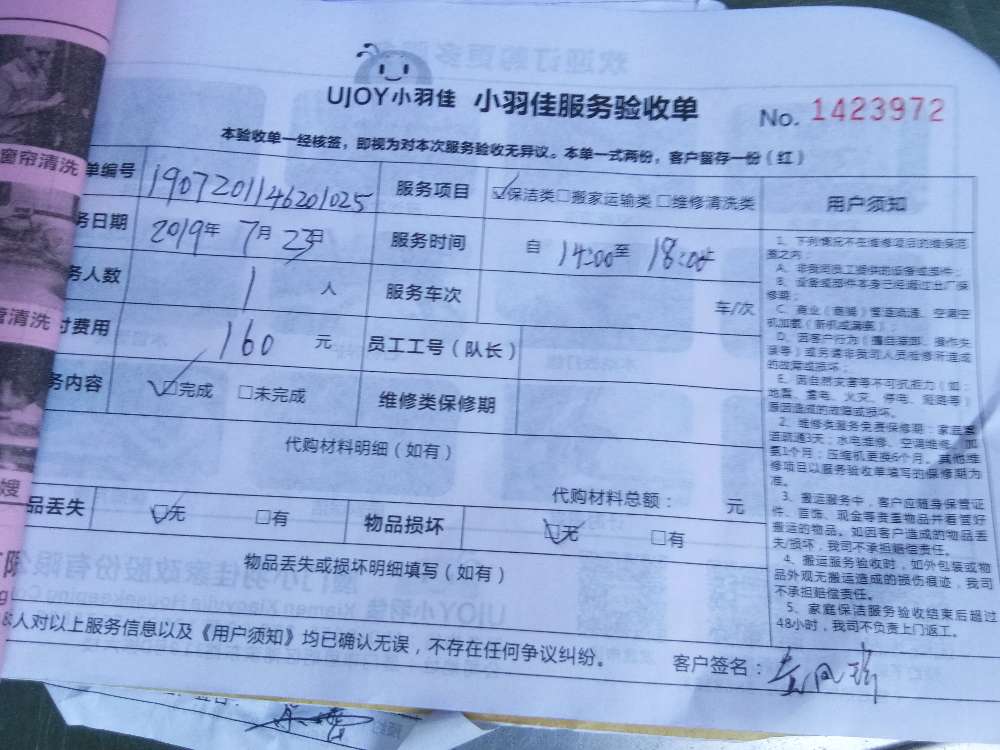 UJOY小羽佳 小羽佳服务验收单 No. 1423972
本验收单一经核签，即视为对本次服务验收无异议。本单一式两份，客户留存一份（红）
单编号 1907201146201025 服务项目 ☑保洁类□搬家运输类□维修清洗类
务日期 2019年 7月 23日 服务时间 自 14:00至 18:00
务人数 1 人 服务车次 车/次
付费用 160 元 员工工号（队长）
务内容 ☑完成 □未完成 维修类保修期
代购材料明细（如有）
代购材料总额： 元
品丢失 ☑无 □有 物品损坏 ☑无 □有
物品丢失或损坏明细填写（如有）
人对以上服务信息以及《用户须知》均已确认无误，不存在任何争议纠纷。
客户签名：
用户须知
1、下列情况不在维修项目的维保范
围之内：
A、非我司员工提供的设备或部件；
B、设备或部件本身已经超过出厂保
修期；
C、商业（商铺）管道疏通、空调空
机加氨（新机或满氨）；
D、因客户行为（擅自装卸、操作失
误等）或另请非我司人员检修所造成
的故障或损坏；
E、因自然灾害等不可抗拒力（如：
地震、雷电、火灾、停电、短路等）
原因造成的故障或损坏。
2、维修类服务免费保修期：家庭管
道疏通3天；水电维修、空调维修、加
氨1个月；压缩机更换6个月。其他维
修项目以服务验收单填写的保修期为
准。
3、搬运服务中，客户应随身保管证
件、首饰、现金等贵重物品并看管好
搬运的物品。如因客户造成的物品丢
失/损坏，我司不承担赔偿责任。
4、搬运服务验收时，如外包装或物
品外观无搬运造成的损伤痕迹，我司
不承担赔偿责任。
5、家庭保洁服务验收结束后超过
48小时，我司不负责上门返工。
窗帘清洗
管清洗
嫂